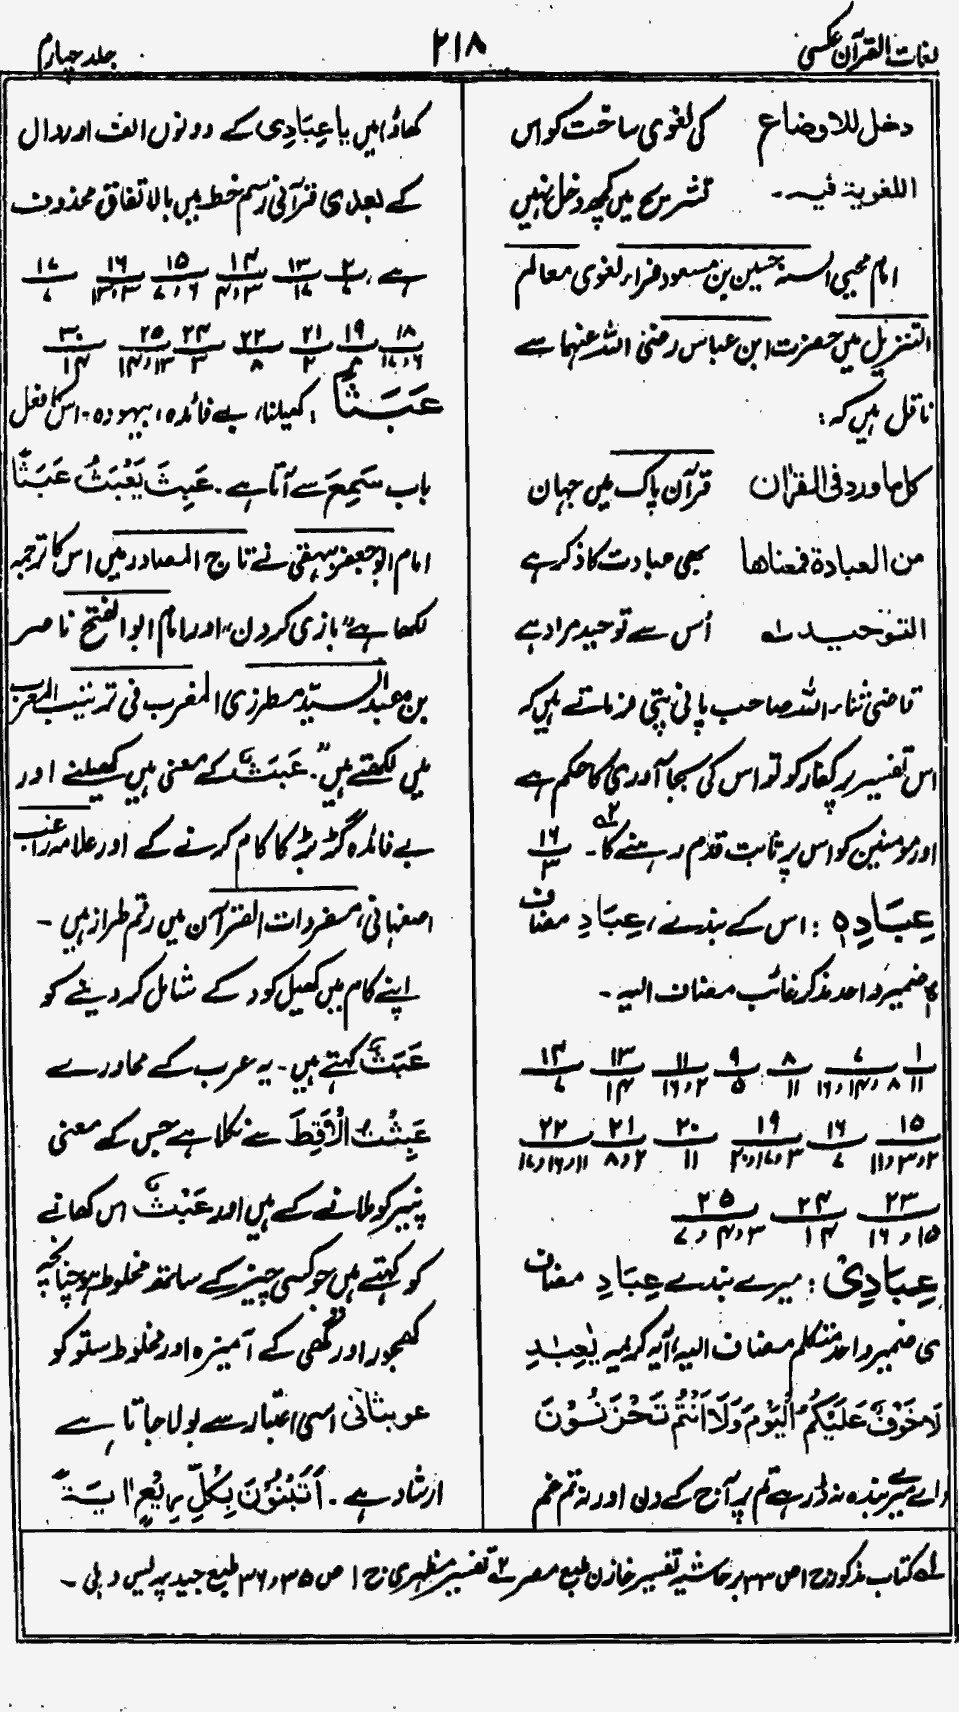 لغات القرآن عکسی
۲۱۸
جلد چہارم
دخل للاوضاع کی لغوی ساخت کو اس
اللغویۃ فیہ۔ تشریح میں کچھ دخل نہیں
امام محیی السنہ حسین بن مسعود فراء لغوی معالم
التنزیل میں حضرت ابن عباس رضی اللہ عنہما سے
ناقل ہیں کہ:
کل ما ورد فی القراٰن قرآن پاک میں جہان
من العبادۃ فمعناھا بھی عبادت کا ذکر ہے
التوحید لہ اُس سے توحید مراد ہے
قاضی ثناء اللہ صاحب پانی پتی فرماتے ہیں کہ
اس تفسیر پر کفار کو تو اس کی بجا آوری کا حکم ہے
اور مومنین کو اس پر ثابت قدم رہنے کا۔ ۲؎ ۱۶/۳
عِبَادِہٖ : اس کے بندے، عِبَادِ مضاف
ہٖ ضمیر واحد مذکر غائب مضاف الیہ۔
۱/۱۱ ۷/۸،۱۴،۱۶ ۸/۱۱ ۹/۵ ۱۱/۲،۱۶ ۱۳/۱۴ ۱۴/۷
۱۵/۲،۳،۱۱ ۱۶/۷ ۱۹/۳،۱۷،۲۰ ۲۰/۱۱ ۲۱/۲،۸ ۲۲/۱۱،۱۶،۱۷
۲۳/۱۵،۱۶ ۲۴/۱۴ ۲۵/۳،۴،۷
عِبَادِیْ : میرے بندے عِبَادِ مضاف
ی ضمیر واحد متکلم مضاف الیہ، آیہ کریمہ یٰعِبَادِ
لَا خَوْفٌ عَلَیْکُمُ الْیَوْمَ وَلَا اَنْتُمْ تَحْزَنُوْنَ
(اے میرے بندہ نہ ڈر ہے تم پر آج کے دن اور نہ تم غم
کھاؤ) میں یا عِبَادِی کے دونوں الف اور دال
کے بعد ی قرآنی رسم خط میں بالاتفاق محذوف
ہے، ۲/۷ ۱۳/۱۷ ۱۴/۳،۴ ۱۵/۶،۷ ۱۶/۳،۱۳ ۱۷/۷
۱۸/۶،۱۷ ۱۹/۸ ۲۱/۲ ۲۲/۸ ۲۴/۳ ۲۵/۱۳،۱۴ ۳۰/۱۴
عَبَثاً : کھیلنا، بے فائدہ، بیہودہ۔ اس کا فعل
باب سَمِعَ سے آتا ہے۔ عَبِثَ یَعْبَثُ عَبَثًا
امام ابو جعفر بیہقی نے تاج المصادر میں اس کا ترجمہ
لکھا ہے "بازی کردن" اور امام ابو الفتح ناصر
بن عبد السید مطرزی المغرب فی ترتیب المعرب
میں لکھتے ہیں"۔ عَبَثٌ کے معنی ہیں کھیلنے اور
بے فائدہ گڑ بڑ کا کام کرنے کے اور علامہ راغب
اصفہانی، مفردات القرآن میں رقم طراز ہیں۔
اپنے کام میں کھیل کود کے شامل کر دینے کو
عَبَثٌ کہتے ہیں۔ یہ عرب کے محاورے
عَبِثْتُ الْاَقِطَ سے نکلا ہے جس کے معنی
پنیر کو ملانے کے ہیں اور عَبْثٌ اس کھانے
کو کہتے ہیں جو کسی چیز کے ساتھ مخلوط ہو چنانچہ
کھجور اور گھی کے آمیزہ اور مخلوط ستو کو
عوبثانی اسی اعتبار سے بولا جاتا ہے
ارشاد ہے۔ اَتَبْنُوْنَ بِکُلِّ رِیْعٍ اٰیَۃً
لہ کتاب مذکور ج ۱ ص ۳۳ بر حاشیہ تفسیر خازن طبع مصر ۲؎ تفسیر مظہری ج ۱ ص ۳۵ و ۳۶ طبع جید پریس دہلی۔